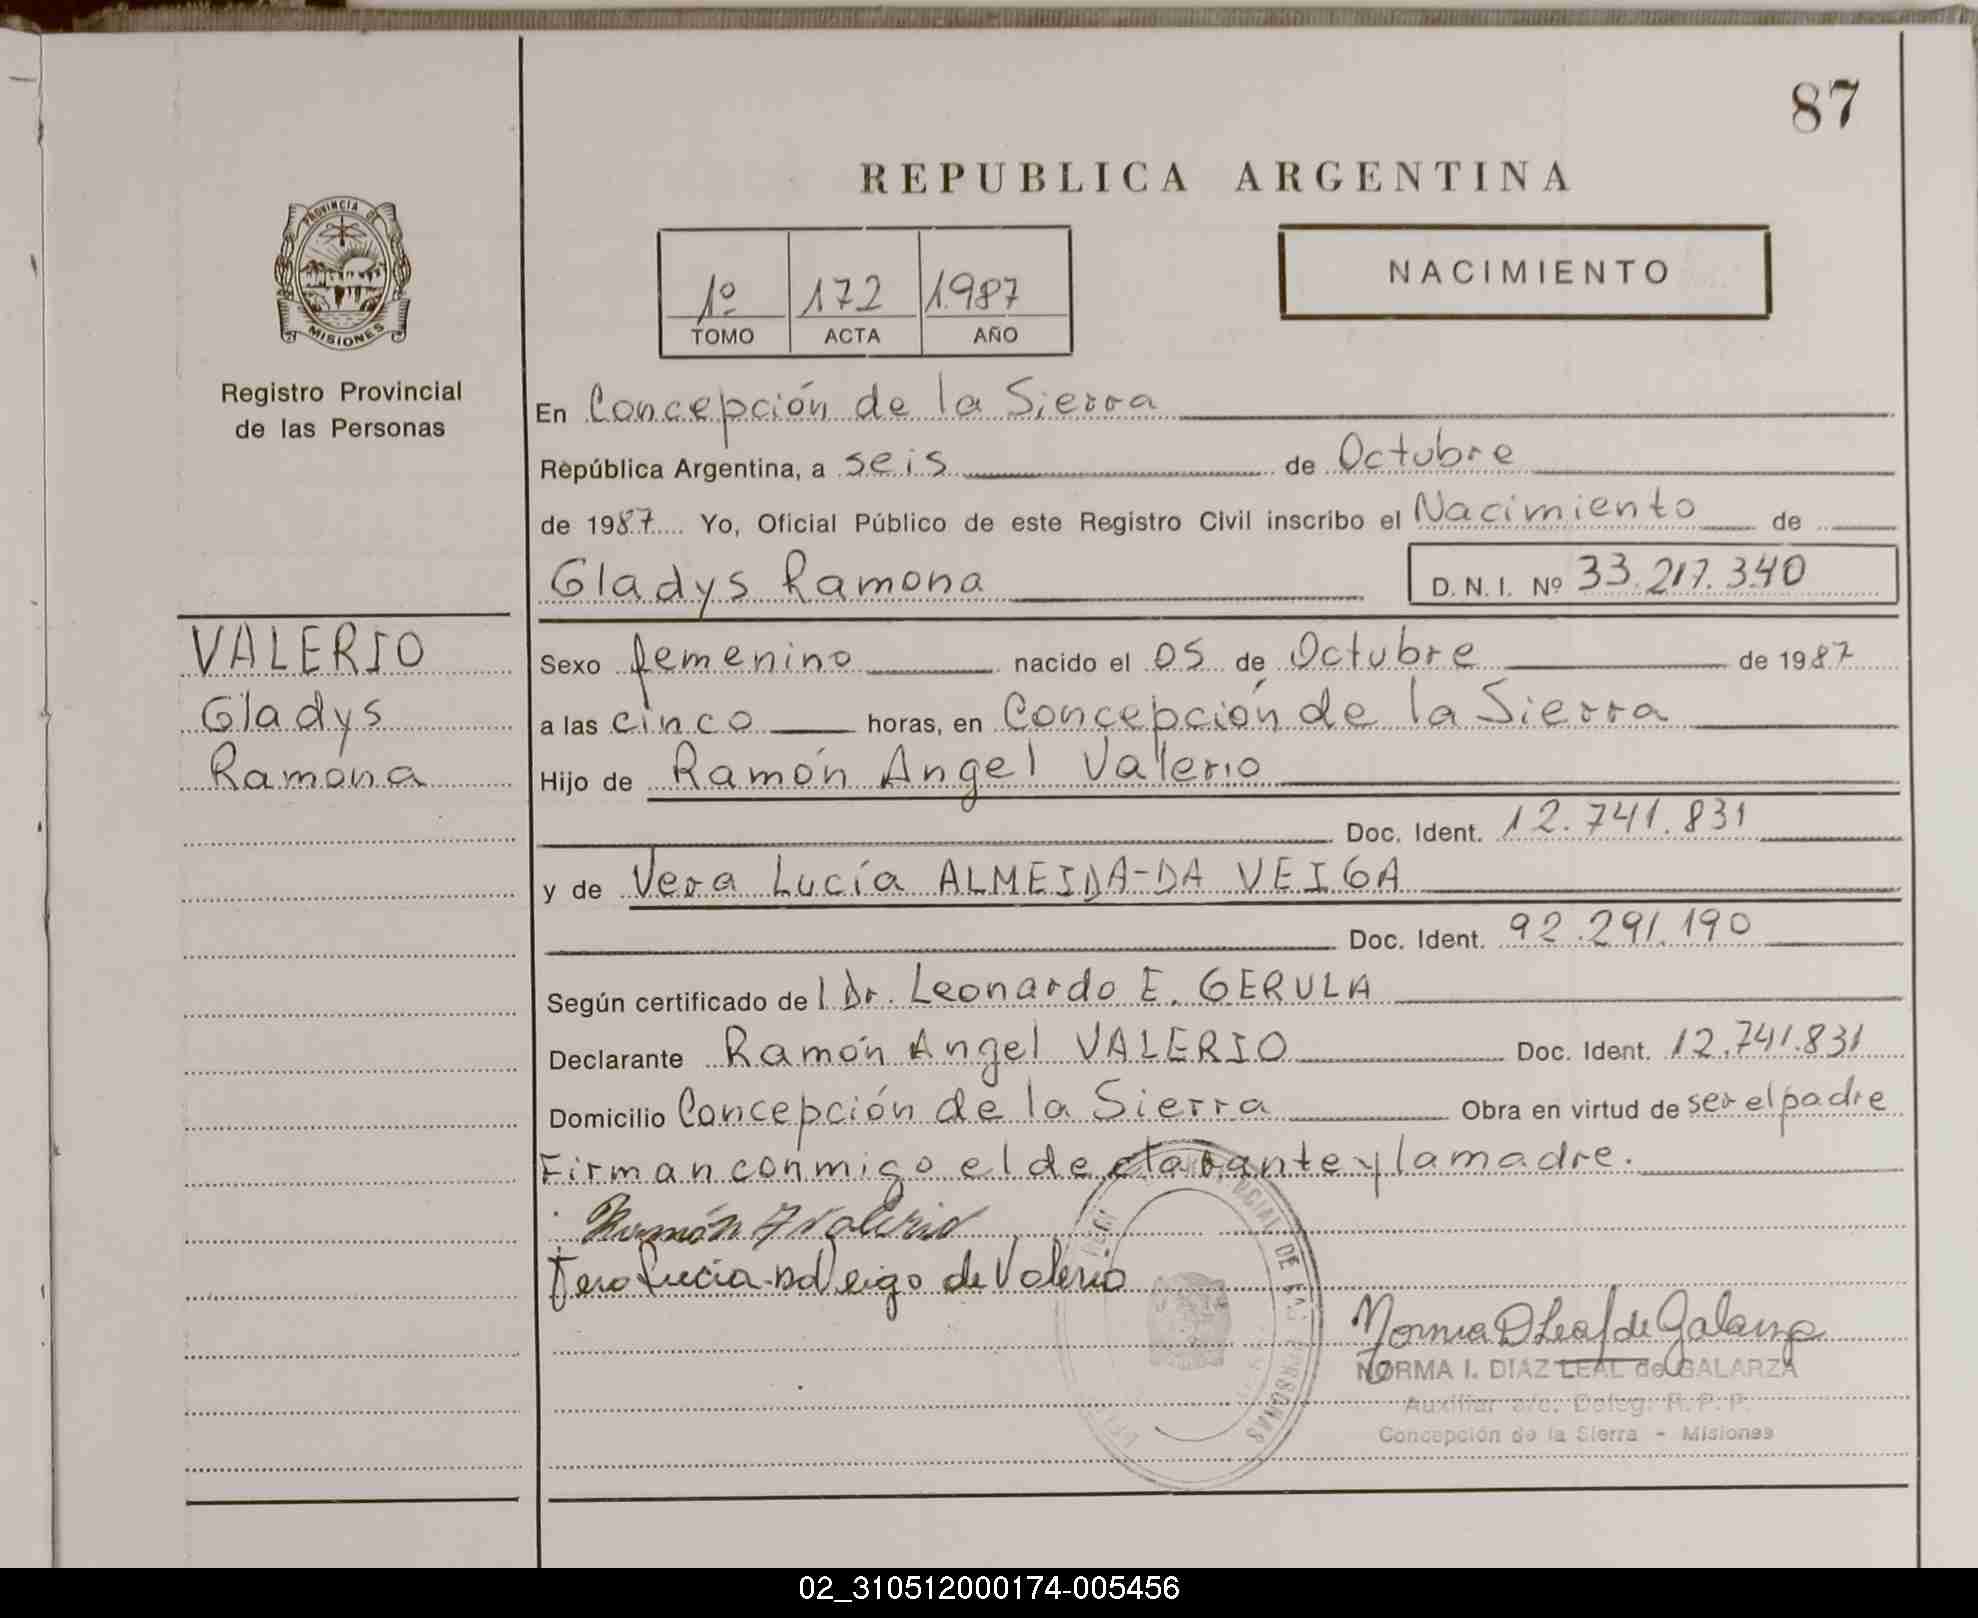 87
REPUBLICA ARGENTINA
PROVINCIA DE
MISIONES
Registro Provincial
de las Personas
1º 172 1987
TOMO ACTA AÑO
NACIMIENTO
En Concepción de la Sierra
República Argentina, a seis de Octubre
de 1987 Yo, Oficial Público de este Registro Civil inscribo el Nacimiento de
Gladys Ramona D. N. I. Nº 33.217.340
VALERIO
Gladys
Ramona
Sexo femenino nacido el 05 de Octubre de 1987
a las cinco horas, en Concepción de la Sierra
Hijo de Ramón Angel Valerio
Doc. Ident. 12.741.831
y de Vera Lucía ALMEIDA-DA VEIGA
Doc. Ident. 92.291.190
Según certificado del Dr. Leonardo E. GERULA
Declarante Ramón Angel VALERIO Doc. Ident. 12.741.831
Domicilio Concepción de la Sierra Obra en virtud de ser el padre
Firman conmigo el declarante y la madre.
Ramón A Valerio
Lucia Veiga de Valerio
Norma D Leal de Galarza
NORMA I. DIAZ LEAL de GALARZA
Auxiliar a/c. Deleg. R. P. P.
Concepción de la Sierra - Misiones
DE LAS PERSONAS
02_310512000174-005456